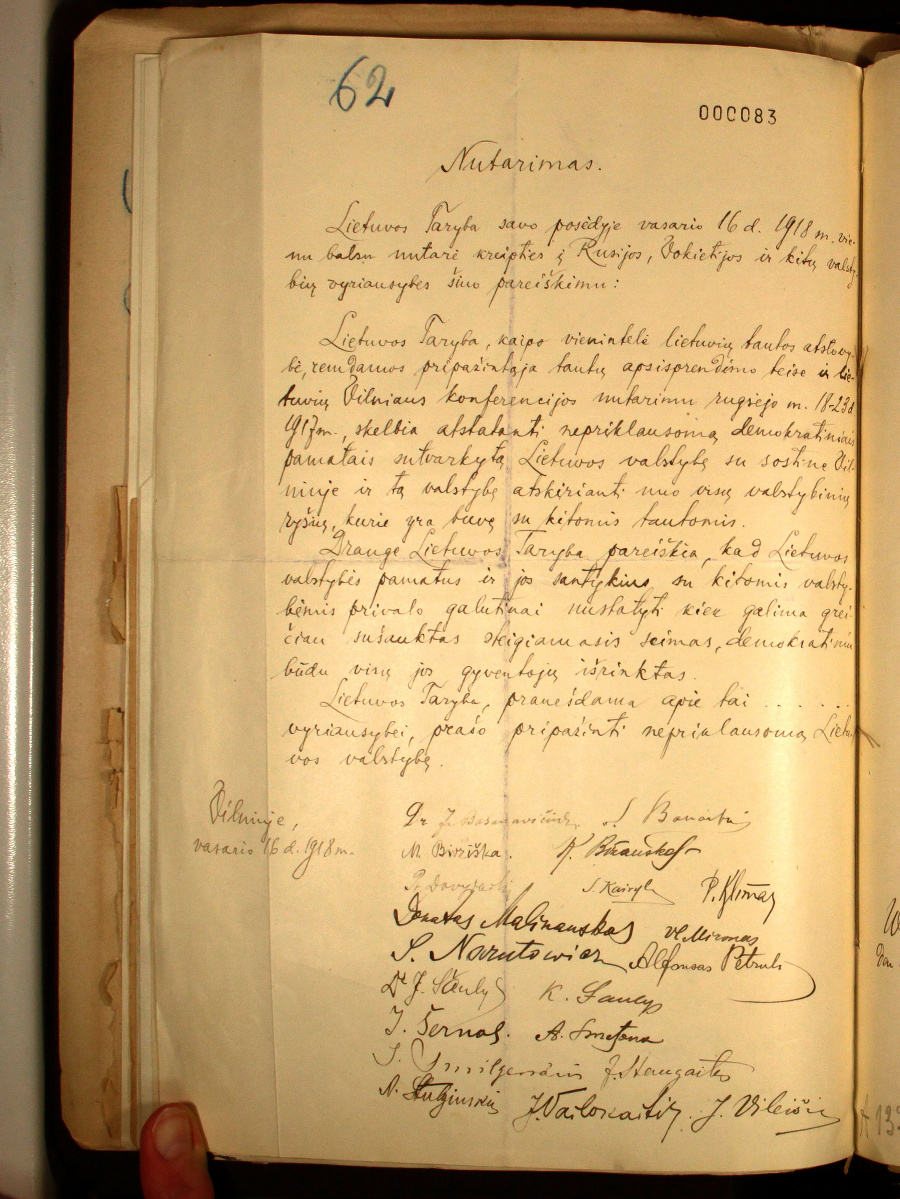 62
000083
Nutarimas.
Lietuvos Taryba savo posėdyje vasario 16 d. 1918 m. vie-
nu balsu nutarė kreipties į Rusijos, Vokietijos ir kitų valsty-
bių vyriausybes šiuo pareiškimu:
Lietuvos Taryba, kaipo vienintelė lietuvių tautos atstovy-
bė, remdamos pripažintąja tautų apsisprendimo teise ir lie-
tuvių Vilniaus konferencijos nutarimu rugsėjo m. 18-23 d.
1917 m., skelbia atstatanti nepriklausomą demokratiniais
pamatais sutvarkytą Lietuvos valstybę su sostine Vil-
niuje ir tą valstybę atskirianti nuo visų valstybinių
ryšių, kurie yra buvę su kitomis tautomis.
Drauge Lietuvos Taryba pareiškia, kad Lietuvos
valstybės pamatus ir jos santykius su kitomis valsty-
bėmis privalo galutinai nustatyti kiek galima grei-
čiau sušauktas steigiamasis seimas, demokratiniu
būdu visų jos gyventojų išrinktas.
Lietuvos Taryba, pranešdama apie tai . . . . . .
vyriausybei, prašo pripažinti nepriklausomą Lietu-
vos valstybę.
Vilniuje,
vasario 16 d. 1918 m.
Dr J. Basanavičius S. Banaitis
M. Biržiška. K. Bizauskas
P. Dovydaitis S. Kairys P. Klimas
Donatas Malinauskas Vl. Mironas
S. Narutowicz Alfonsas Petrulis
Dr J. Šaulys K. Šaulys
J. Šernas. A. Smetona
J. Smilgevičius J. Staugaitis
A. Stulginskis J. Vailokaitis. J. Vileišis